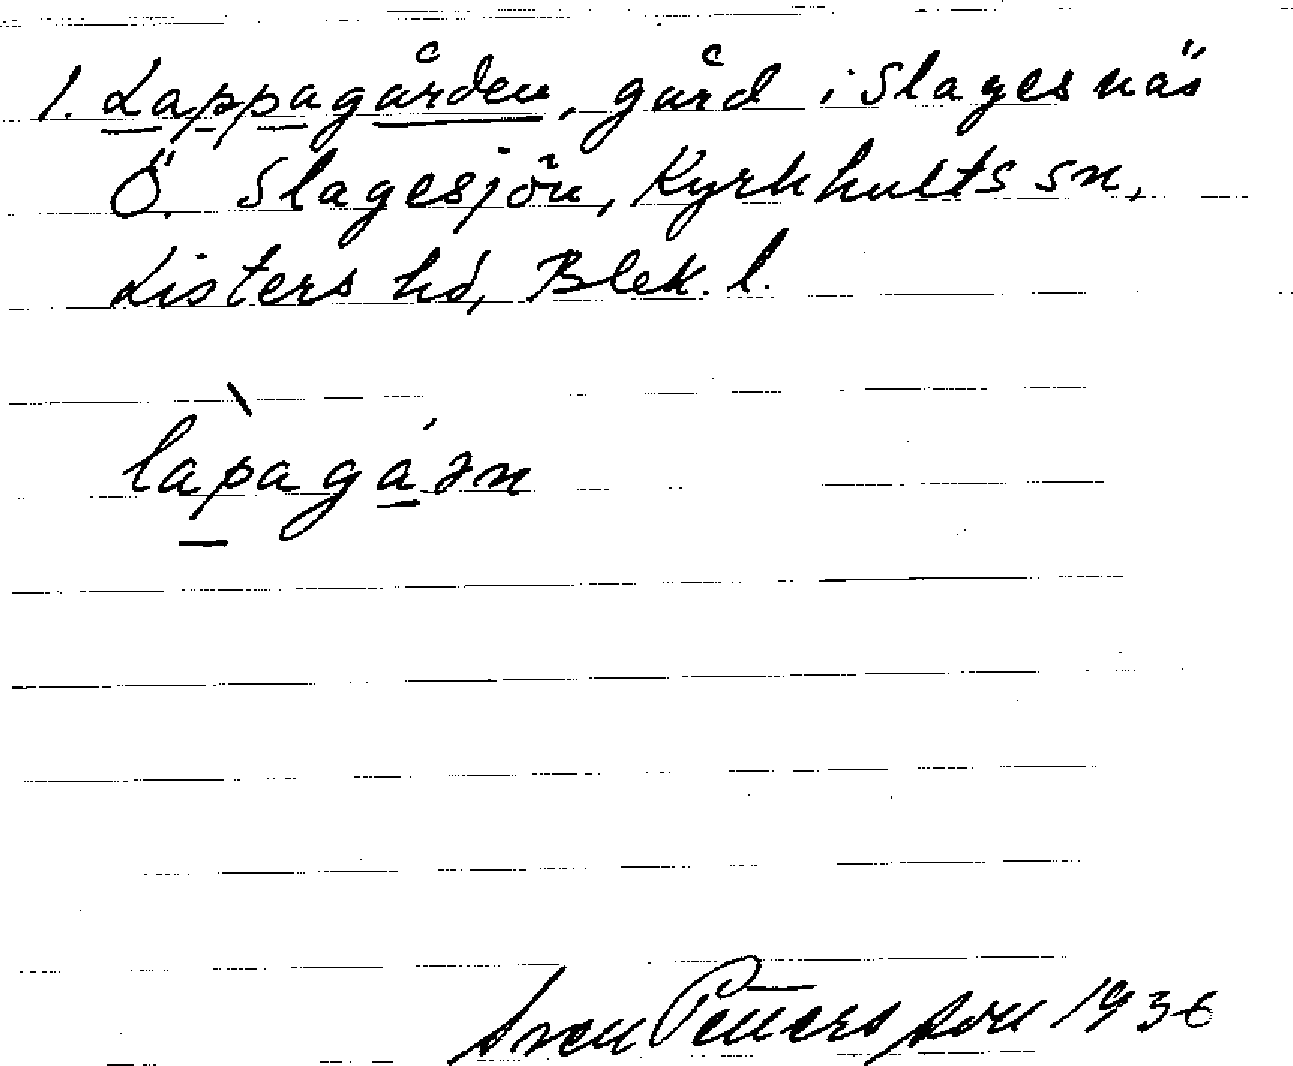 1. Lappagården, gård i Slagesnäs
Ö. Slagesjön, Kyrkhults sn,
Listers hd, Blek. l.
làpagá̱ən
Sven Pettersson 1936